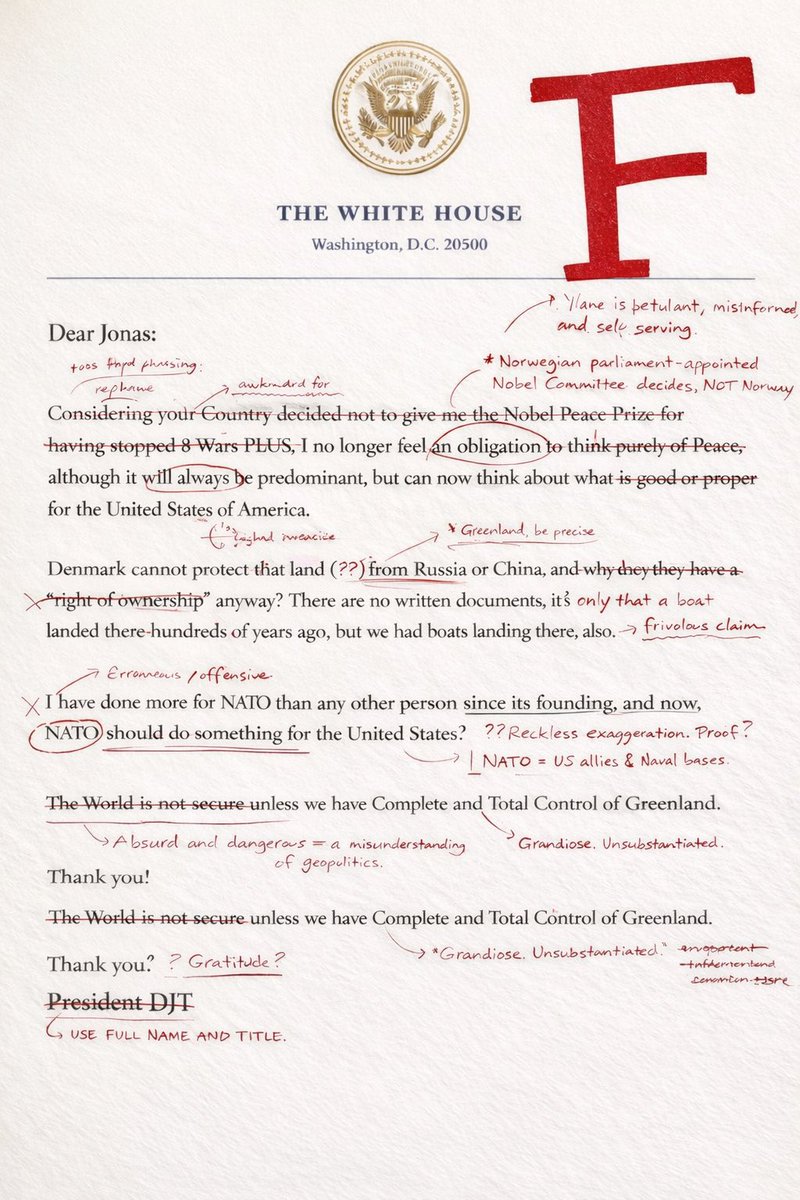 F
THE WHITE HOUSE
Washington, D.C. 20500
is petulant, misinformed,
and self serving.
Dear Jonas:
* Norwegian parliament-appointed
Nobel Committee decides, NOT Norway
rephrase
awkward for
Considering your Country decided not to give me the Nobel Peace Prize for
having stopped 8 Wars PLUS, I no longer feel an obligation to think purely of Peace,
although it will always be predominant, but can now think about what is good or proper
for the United States of America.
* Greenland, be precise
Denmark cannot protect that land (??) from Russia or China, and why they they have a
"right of ownership" anyway? There are no written documents, it's only that a boat
landed there-hundreds of years ago, but we had boats landing there, also. → frivolous claim
Erroneous / offensive.
X I have done more for NATO than any other person since its founding, and now,
NATO should do something for the United States? ?? Reckless exaggeration. Proof?
NATO = US allies & Naval bases.
The World is not secure unless we have Complete and Total Control of Greenland.
Absurd and dangerous = a misunderstanding
of geopolitics.
Grandiose. Unsubstantiated.
Thank you!
The World is not secure unless we have Complete and Total Control of Greenland.
"Grandiose. Unsubstantiated."
Thank you? ? Gratitude?
President DJT
USE FULL NAME AND TITLE.